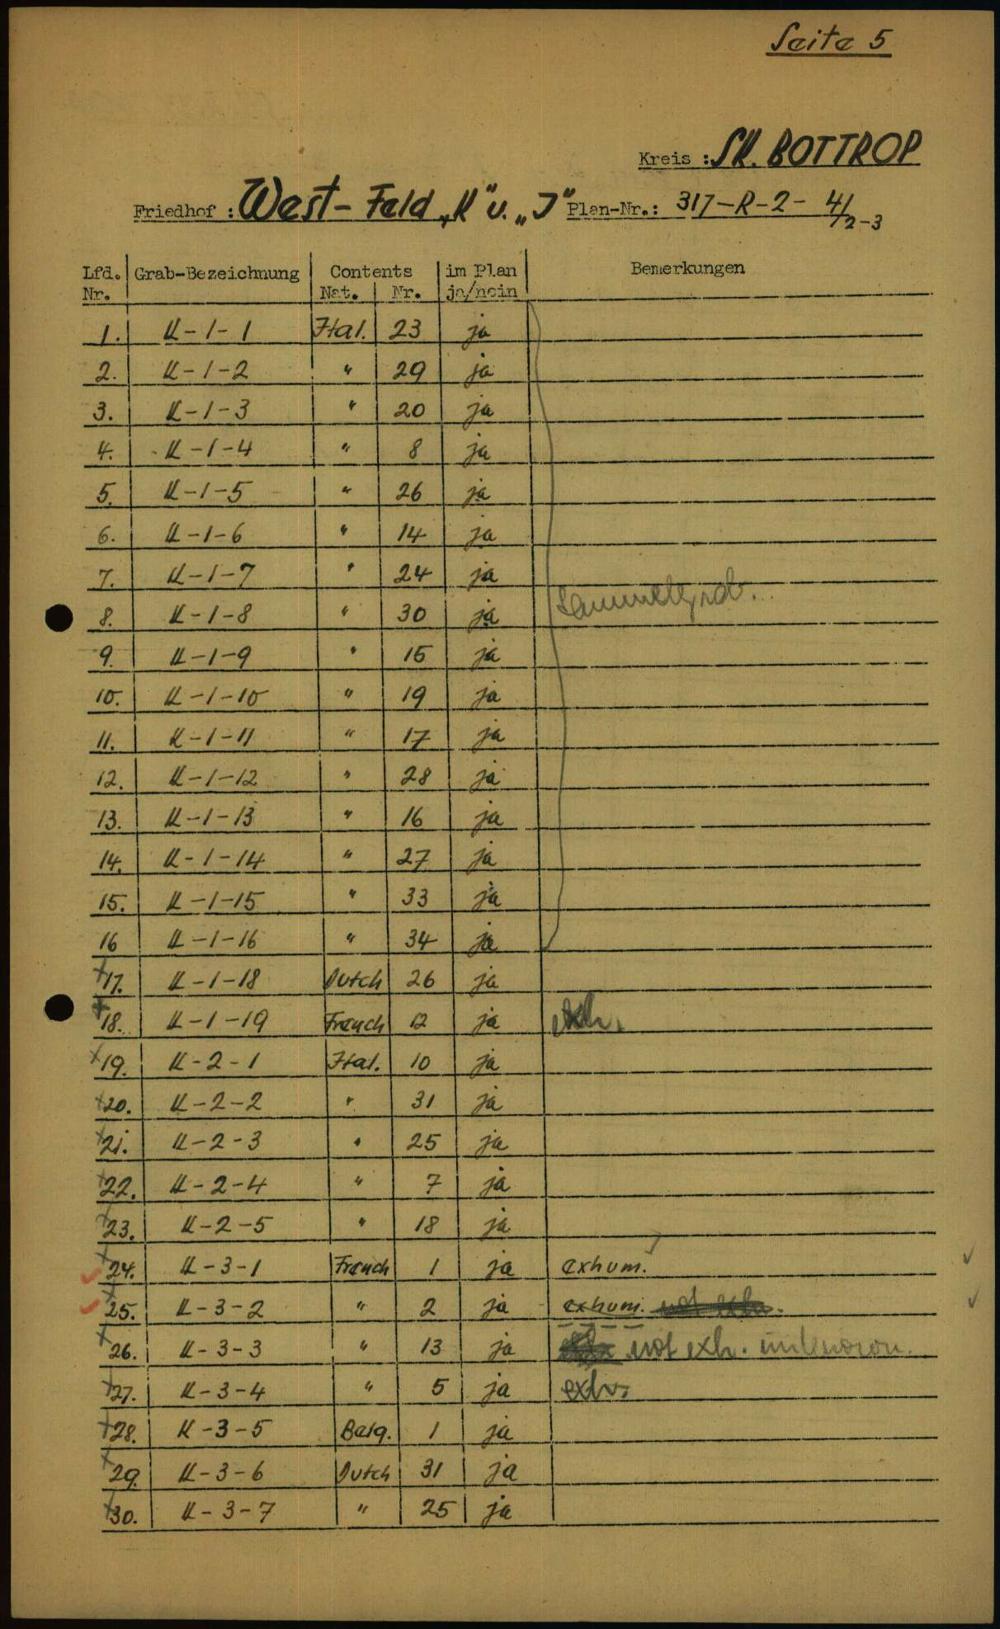 Seite 5
Kreis : SK. BOTTROP
Friedhof : West-Feld „K" u. „J" Plan-Nr.: 317-R-2- 4/2-3
Lfd. Nr. Grab-Bezeichnung Contents Nat. Nr. im Plan ja/nein Bemerkungen
1. K-1-1 Ital. 23 ja
2. K-1-2 " 29 ja
3. K-1-3 " 20 ja
4. K-1-4 " 8 ja
5. K-1-5 " 26 ja
6. K-1-6 " 14 ja
7. K-1-7 " 24 ja
8. K-1-8 " 30 ja Sammelgrab.
9. K-1-9 " 15 ja
10. K-1-10 " 19 ja
11. K-1-11 " 17 ja
12. K-1-12 " 28 ja
13. K-1-13 " 16 ja
14. K-1-14 " 27 ja
15. K-1-15 " 33 ja
16 K-1-16 " 34 ja
17. K-1-18 Dutch 26 ja
18. K-1-19 French 12 ja exh.
19. K-2-1 Ital. 10 ja
20. K-2-2 " 31 ja
21. K-2-3 " 25 ja
22. K-2-4 " 7 ja
23. K-2-5 " 18 ja
24. K-3-1 French 1 ja exhum.
25. K-3-2 " 2 ja exhum. not exh.
26. K-3-3 " 13 ja not exh. unknown.
27. K-3-4 " 5 ja exh.
28. K-3-5 Belg. 1 ja
29. K-3-6 Dutch 31 ja
30. K-3-7 " 25 ja